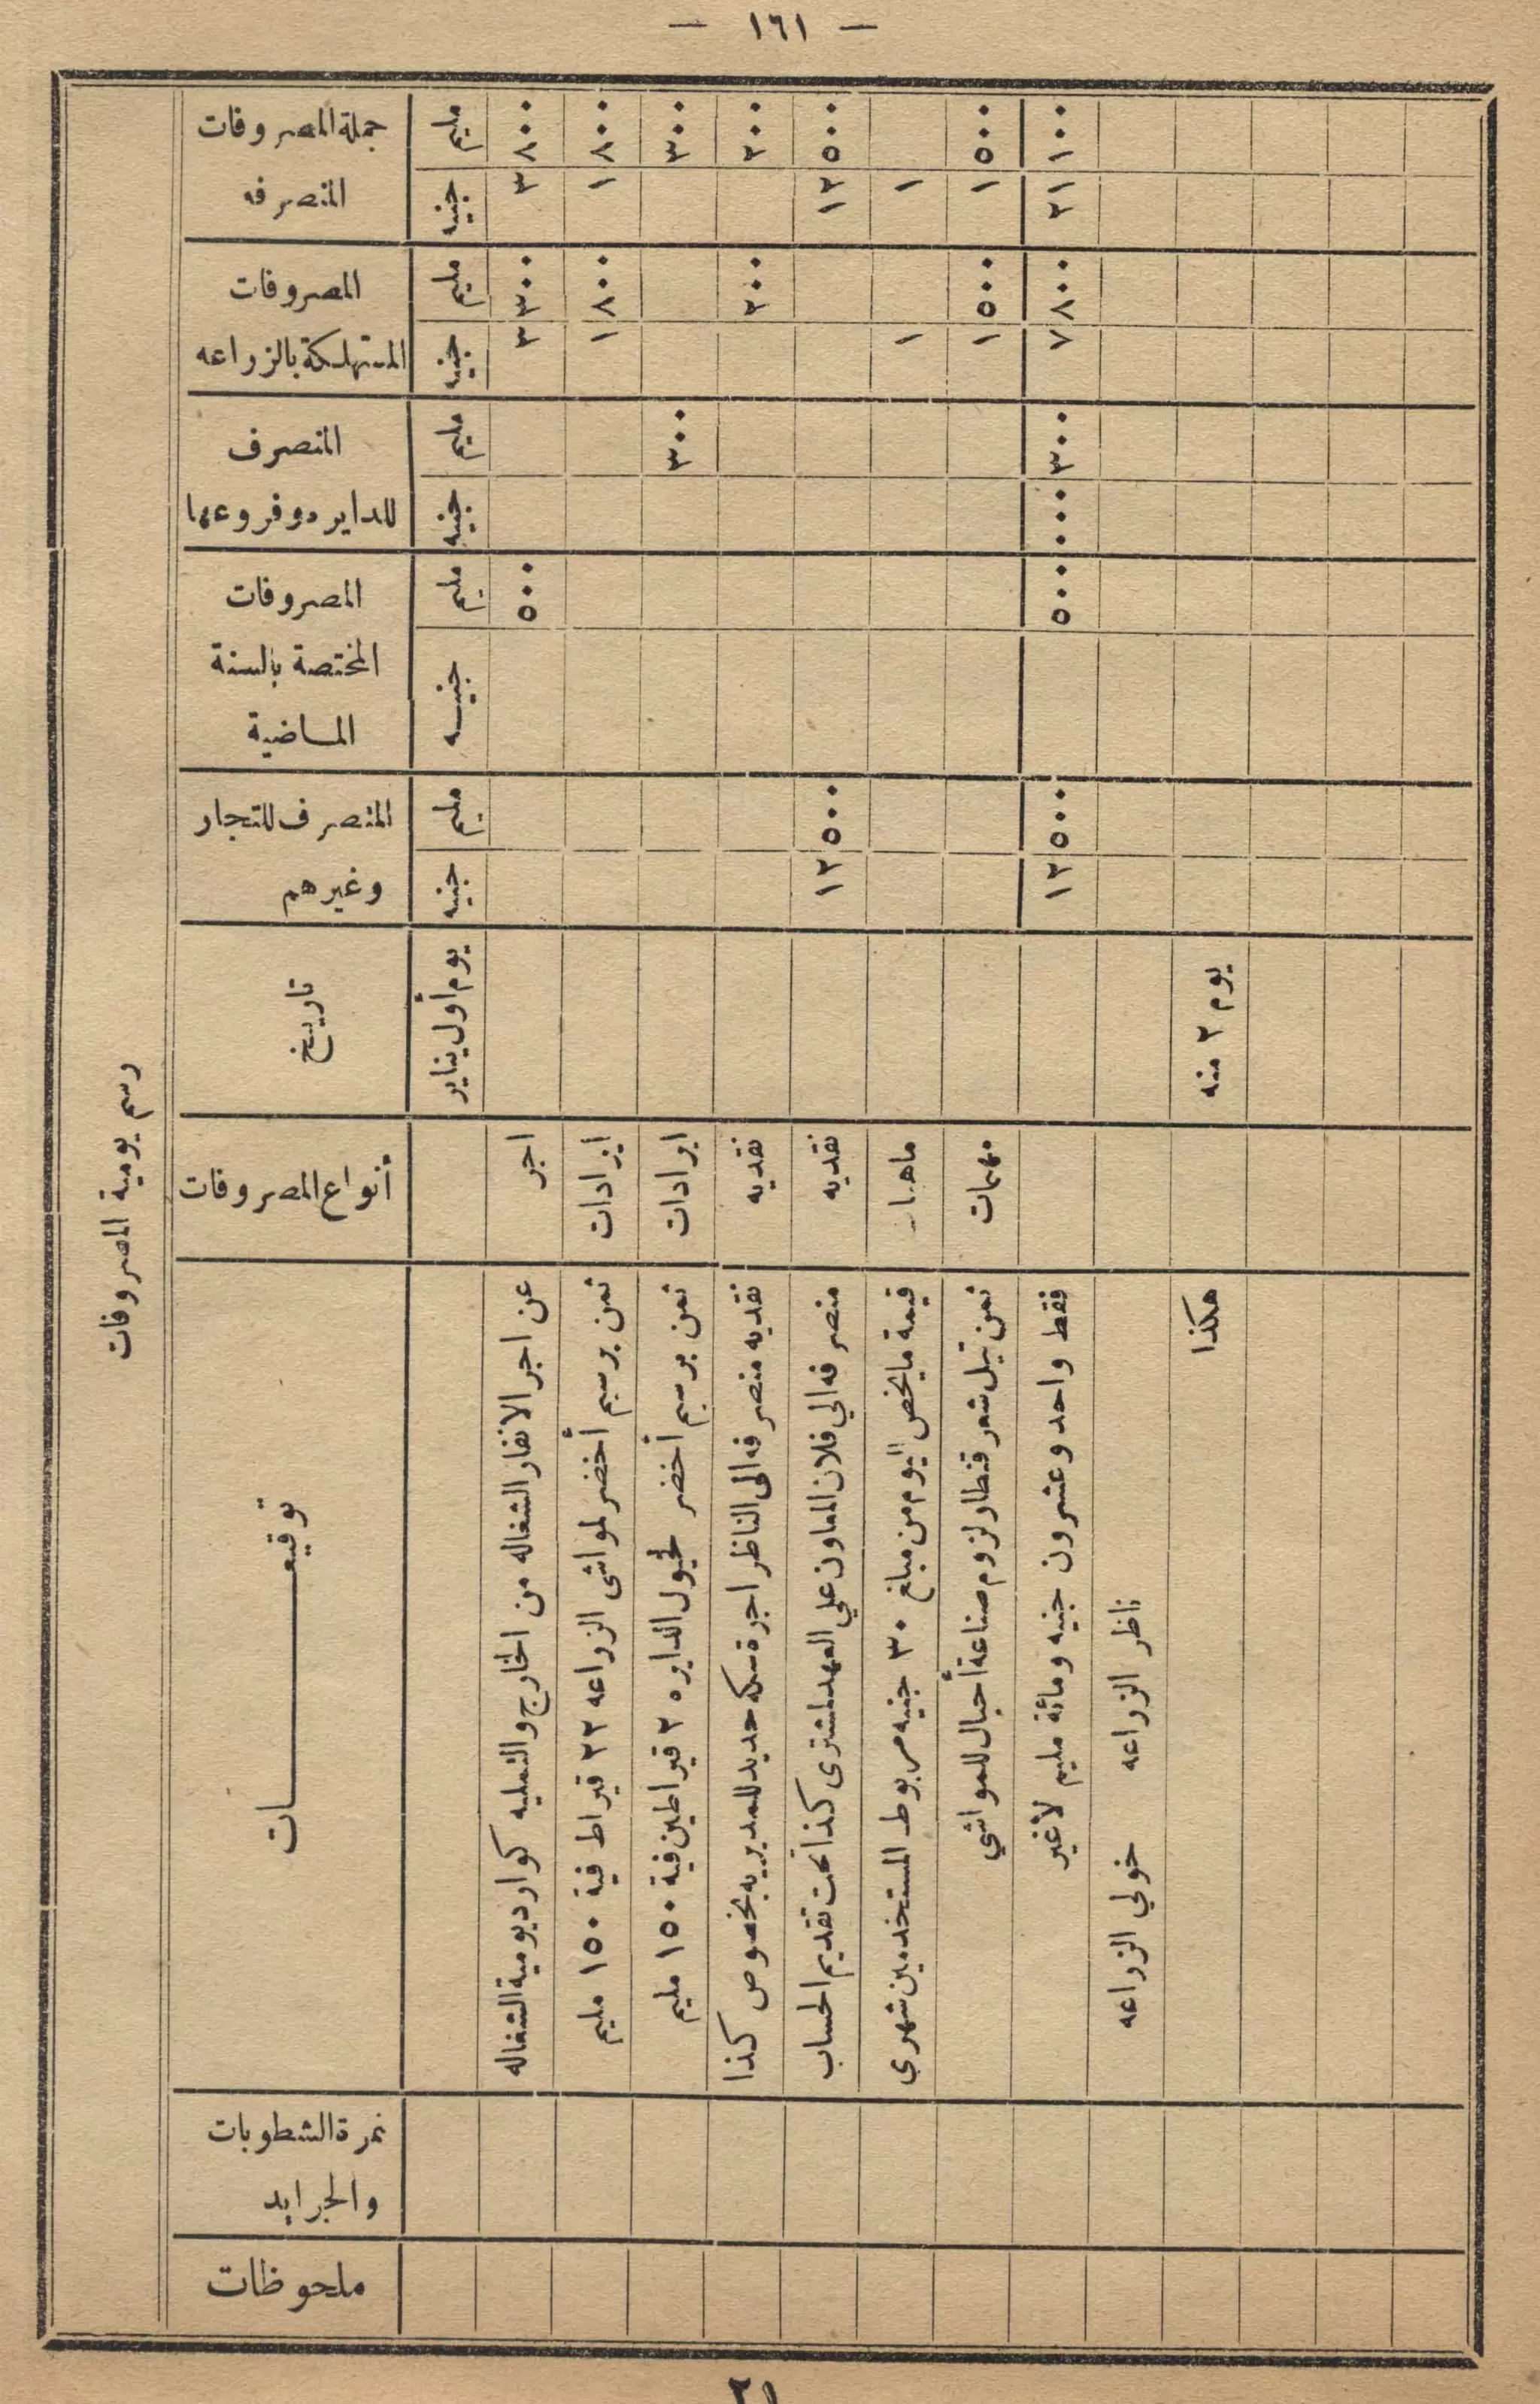 — ١٦١ —
رسم يومية المصروفات
جملة المصروفات المنصرفه
مليم
جنيه
المصروفات المستهلكة بالزراعه
مليم
جنيه
المنصرف للدايره وفروعها
مليم
جنيه
المصروفات المختصة بالسنة الماضية
مليم
جنيه
المنصرف للتجار وغيرهم
مليم
جنيه
تاريخ
أنواع المصروفات
توقيعات
نمرة الشطوبات والجرايد
ملحوظات
يوم أول يناير
٨٠٠ ٣ ٣٠٠ ٣ ٥٠٠ اجر عن اجر الانفار الشغاله من الخارج والتمليه كوارد يومية الشغاله
٨٠٠ ١ ٨٠٠ ١ ايرادات ثمن برسيم أخضر لمواشى الزراعه ٢٢ قيراط فية ١٥٠ مليم
٣٠٠ ٣٠٠ ايرادات ثمن برسيم أخضر لخيول الدايره ٢ قيراطين فية ١٥٠ مليم
٢٠٠ ٢٠٠ نقديه نقديه منصرفه الى الناظر اجرة سكه حديد للمديريه بخصوص كذا
٥٠٠ ١٢ ٥٠٠ ١٢ نقديه منصرفه الي فلان المعاون علي العهد لمشترى كذا تحت تقديم الحساب
١ ١ قيمة ما يخص اليوم من مبلغ ٣٠ جنيه مربوط المستخدمين شهري
٥٠٠ ١ ٥٠٠ ١ مهمات ثمن تيل شعر قنطار لزوم صناعة أحبال للمواشي
١٠٠ ٢١ ٨٠٠ ٧ ٣٠٠ ٠٠ ٥٠٠ ٥٠٠ ١٢ فقط واحد وعشرون جنيه ومائة مليم لاغير
ناظر الزراعه خولي الزراعه
يوم ٢ منه هكذا